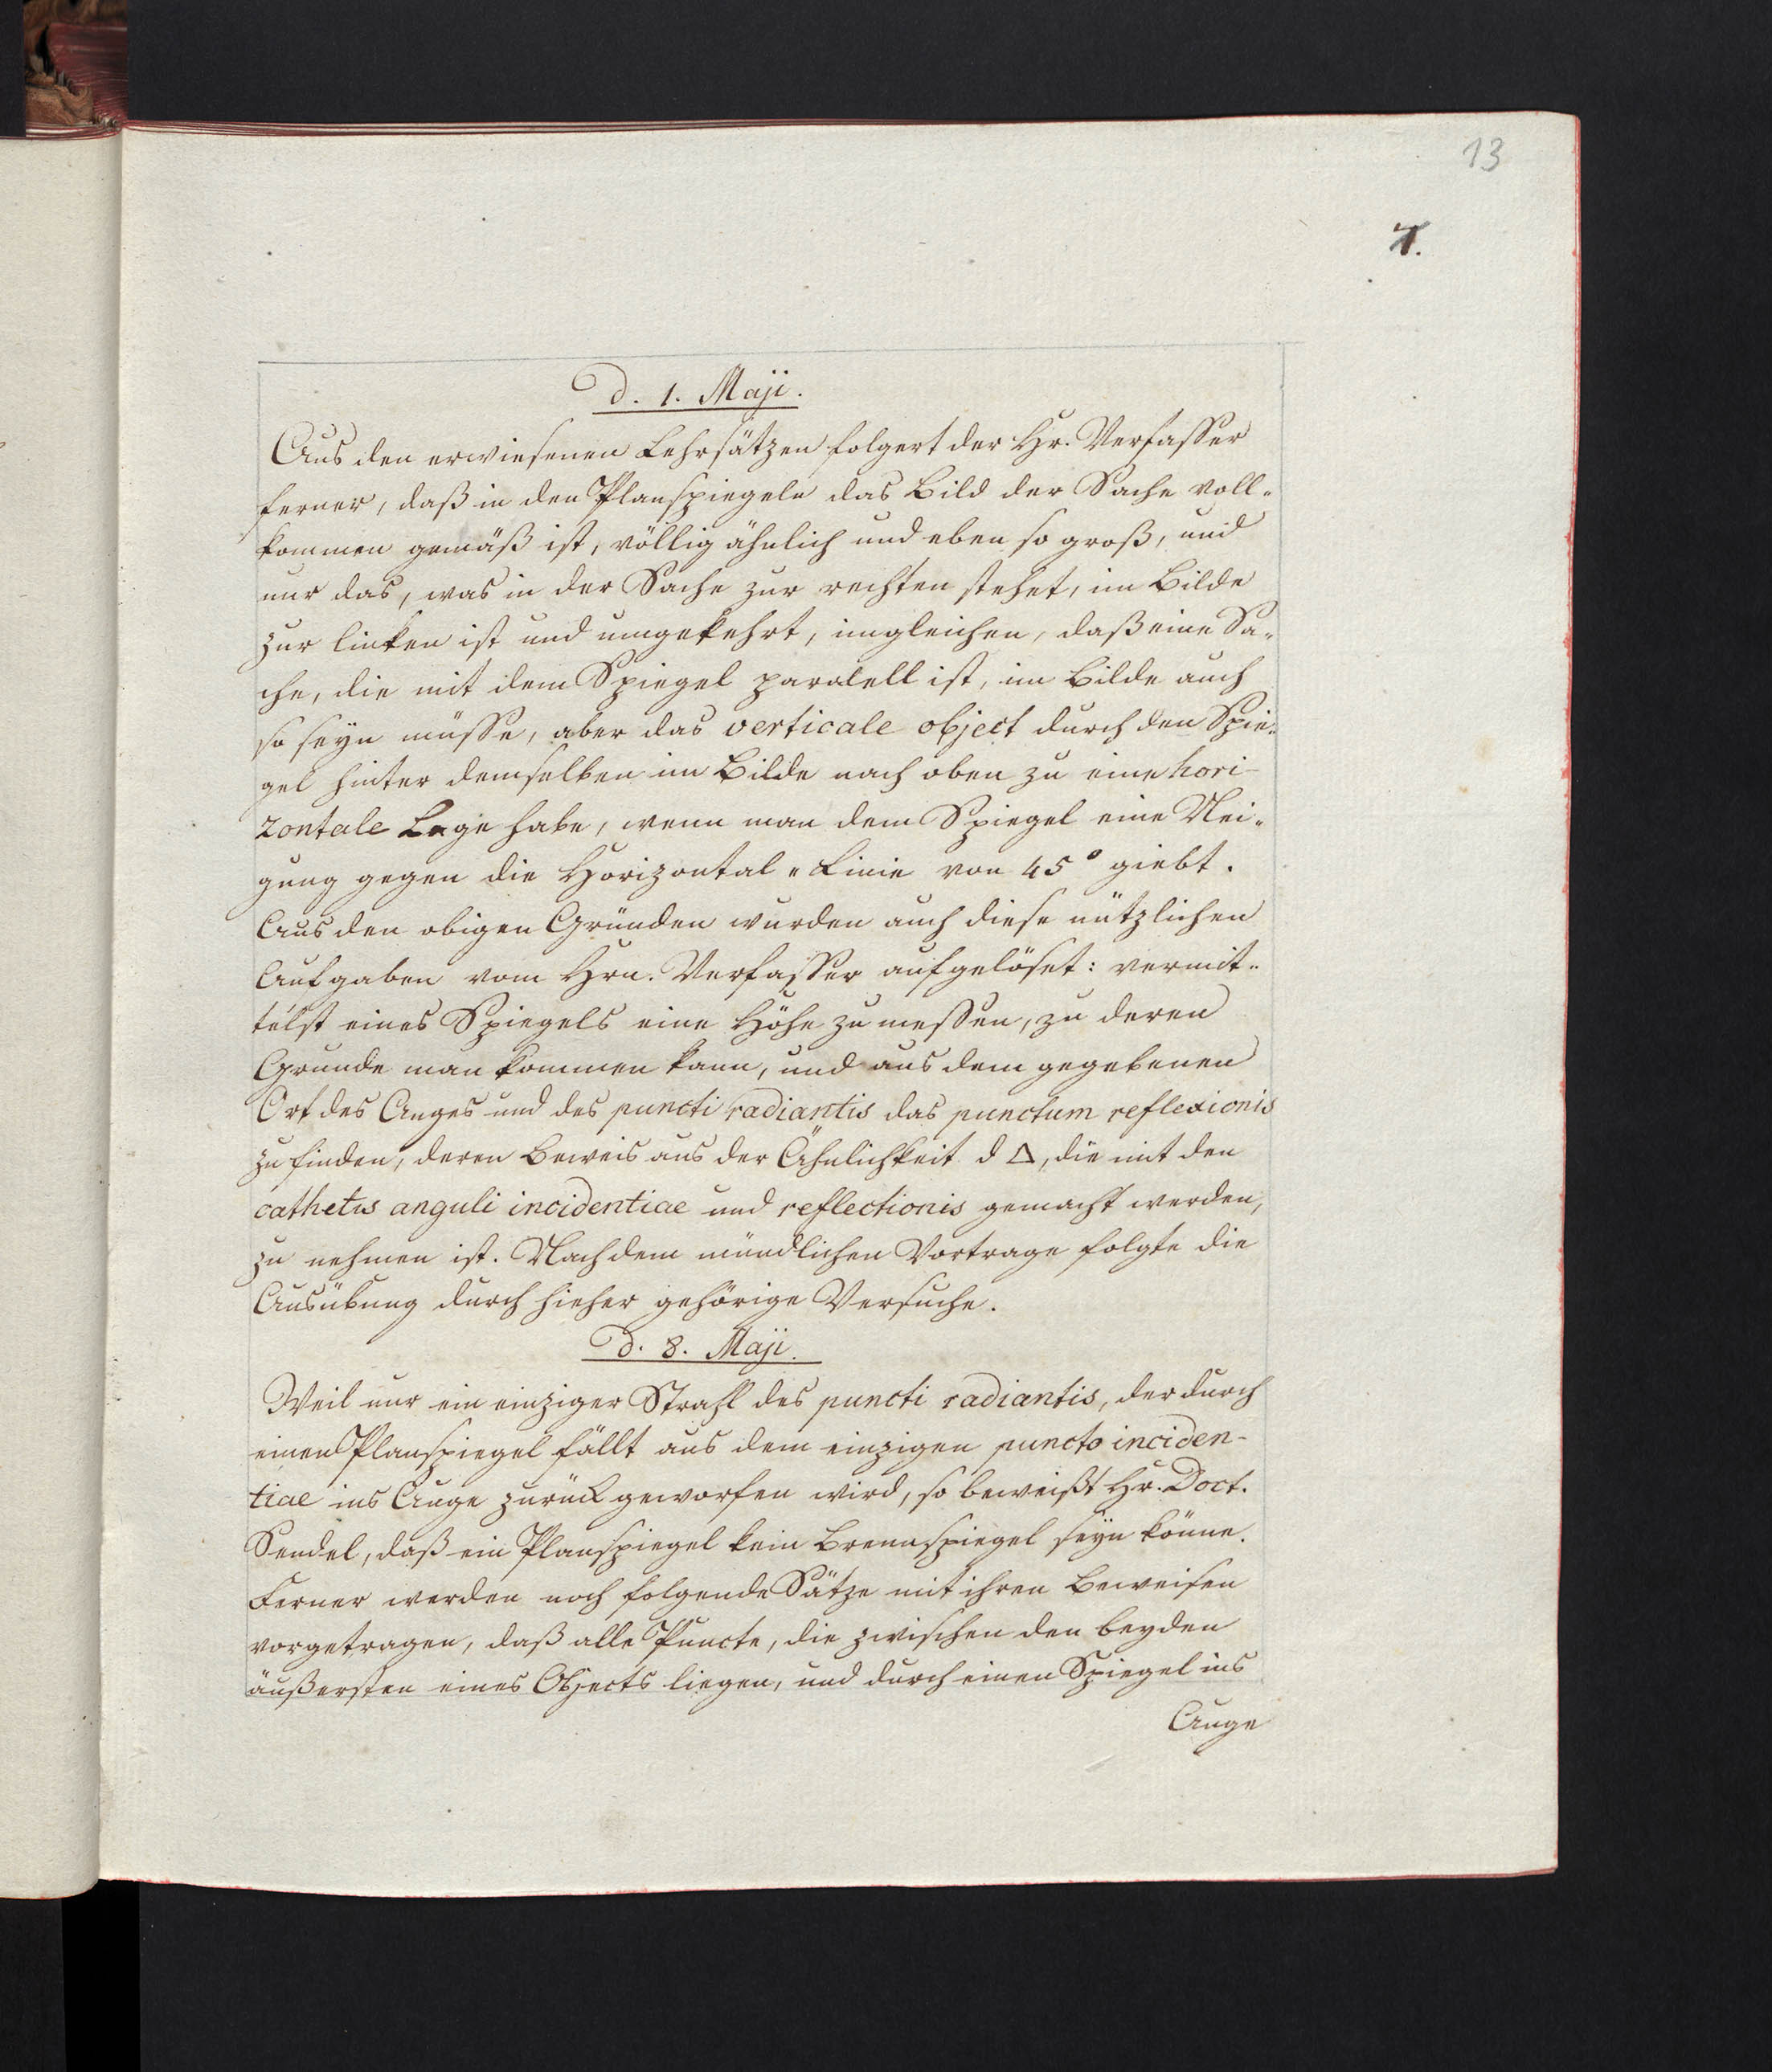 13
d. 1. Maji.
Aus den erwiesenen Lehrsätzen folgert der Hr. Verfasser
ferner, daß in den Planspiegeln das Bild der Sache voll-
kommen gemäß ist, völlig ähnlich und eben so groß, und
nur das, was in der Sache zur rechten stehet, im Bilde
zur linken ist und umgekehrt, imgleichen, daß eine Sa-
che, die mit dem Spiegel paralell ist, im Bilde auch
so seyn müsse, aber das verticale object durch den Spie-
gel hinter demselben im Bilde nach oben zu eine hori-
zontale Lage habe, wenn man dem Spiegel eine Nei-
gung gegen die Horizontal-Linie von 45° giebt.
Aus den obigen Gründen wurden auch diese nützlichen
Aufgaben vom Hrn. Verfasser aufgelöset: vermit-
telst eines Spiegels eine Höhe zu messen, zu deren
Grunde man kommen kann, und aus dem gegebenen
Ort des Auges und des puncti radiantis das punctum reflexionis
zu finden, deren Beweis aus der Ähnlichkeit d Δ, die mit den
cathetis anguli incidentiae und reflectionis gemacht werden,
zu nehmen ist. Nach dem mündlichen Vortrage folgte die
Ausübung durch hieher gehörige Versuche.
d. 8. Maji.
Weil nur ein einziger Strahl des puncti radiantis, der durch
einen Planspiegel fällt aus dem einzigen puncto inciden-
tiae ins Auge zurück geworfen wird, so beweißt Hr. Doct.
Sendel, daß ein Planspiegel kein Brennspiegel seyn könne.
Ferner werden noch folgende Sätze mit ihren Beweisen
vorgetragen, daß alle Puncte, die zwischen den beyden
äußersten eines Objects liegen, und durch einen Spiegel ins
Auge